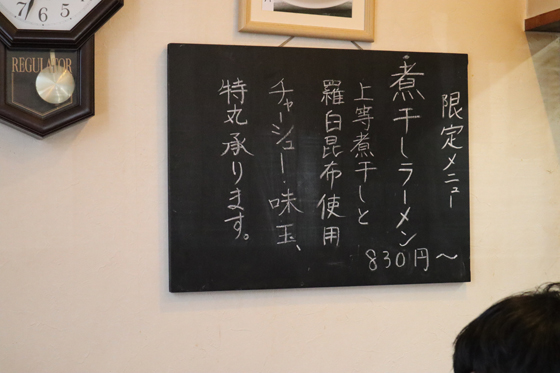 限定メニュー
煮干しラーメン
830円〜
上等煮干しと
羅臼昆布使用
チャーシュー・味玉、
特丸承ります。
REGULATOR
7 6 5